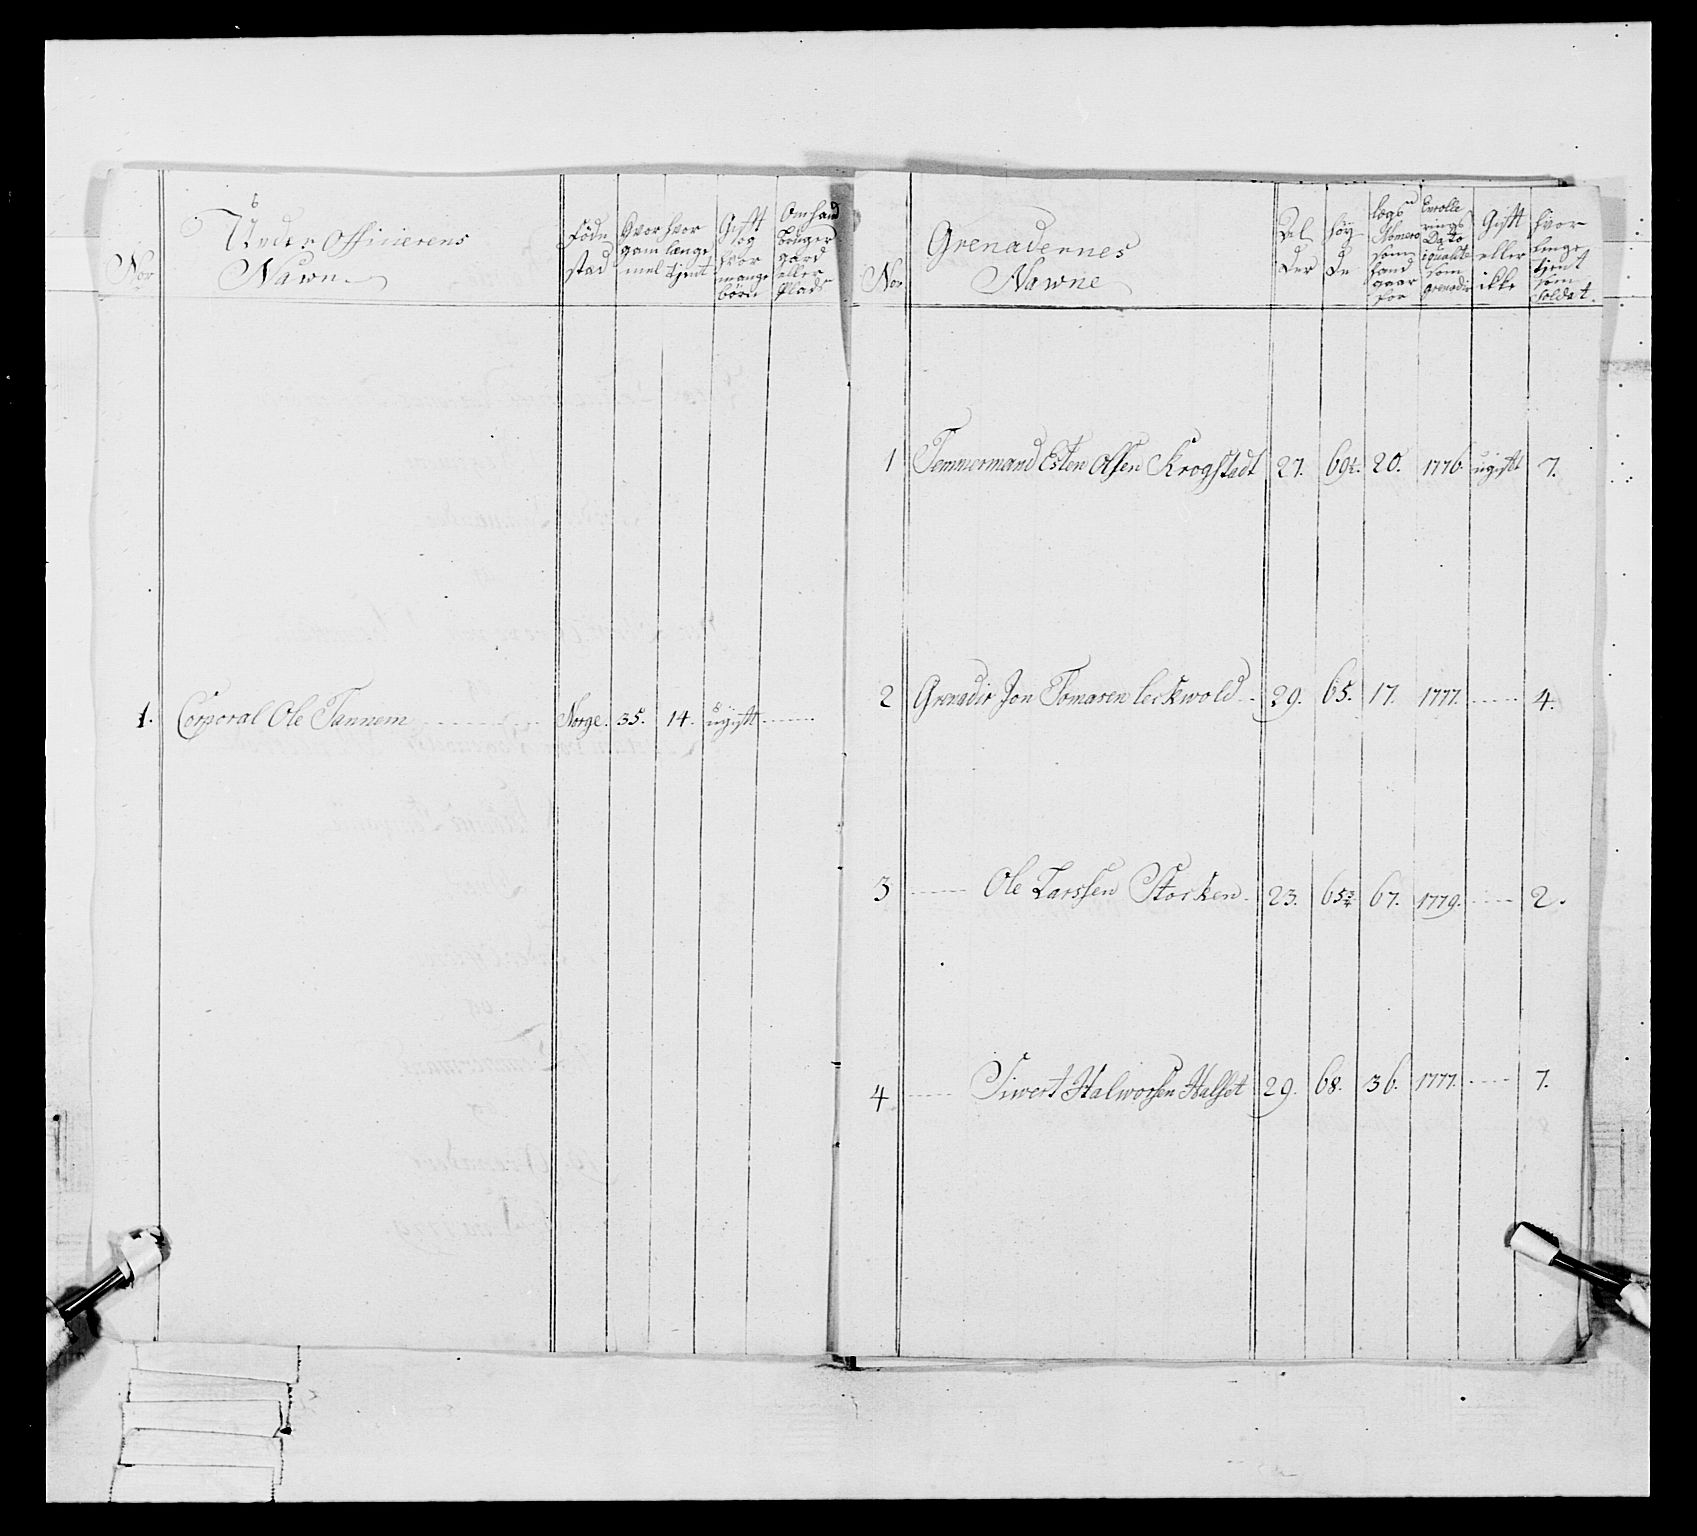 Under Officierens
Nawn
Nor
Föde stad
Hvor gam mel
hvor lenge tjent
Gift og hvor mange börn
Om hand bruger gaard eller Plads
1. Corporal Ole Tannem Norge. 35. 14. ugift
Grenadernes
Nawne
Nor
Al der
höy de
lægs Nomero som hand gaar for
Enrolle rings Dato i qualite som grenadir
Gift eller ikke
hvor lenge tjent som Soldat.
1 Temmermand Esten Olsen Krogstadt 27. 69¼. 20. 1776. ugift 7.
2 Grenadir Jon Tomasen leckwold 29. 65. 17. 1777. 4.
3 Ole Larssen Storken 23. 65¾ 67. 1779. 2.
4 Siwert Halworsen Halset 29. 68. 36. 1777. 7.